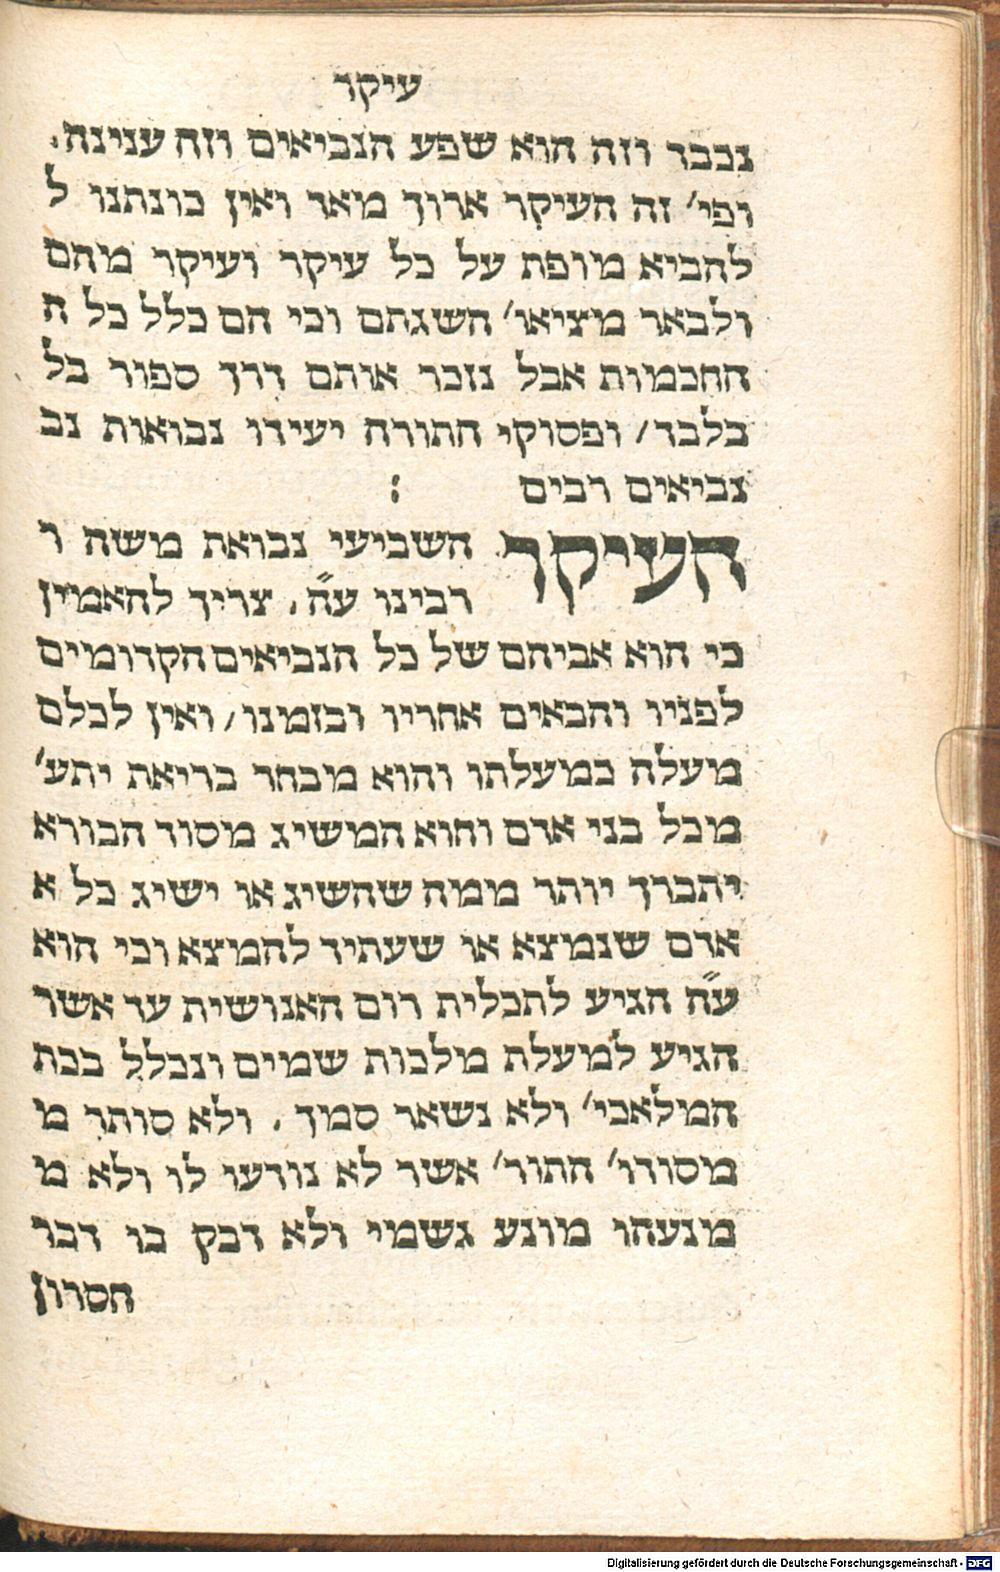 עיקר
נכבד וזה הוא שפע הנביאים וזה ענינה.
ופי׳ זה העיקר ארוך מאד ואין כונתנו ל
להביא מופת על כל עיקר ועיקר מהם
ולבאר מציאו׳ השגתם וכי הם כלל כל ה
החכמות אבל נזכר אותם דרך ספור בל
בלבד/ ופסוקי התורה יעידו נבואות נב
נביאים רבים :
העיקר השביעי נבואת משה ר
רבינו ע״ה. צריך להאמין
כי הוא אביהם של כל הנביאים הקדומים
לפניו והבאים אחריו ובזמנו/ ואין לכלם
מעלה כמעלתו והוא מבחר בריאת יתע׳
מכל בני אדם והוא המשיג מסוד הבורא
יתברך יותר ממה שהשיג או ישיג כל א
אדם שנמצא או שעתיד להמצא וכי הוא
ע״ה הגיע לתכלית רום האנושית עד אשר
הגיע למעלת מלכות שמים ונכלל בכת
המלאכי׳ ולא נשאר סמך. ולא סותר מ
מסודו׳ התור׳ אשר לא נודעו לו ולא מ
מנעהו מונע גשמי ולא דבק בו דבר
חסרון
Digitalisierung gefördert durch die Deutsche Forschungsgemeinschaft - DFG